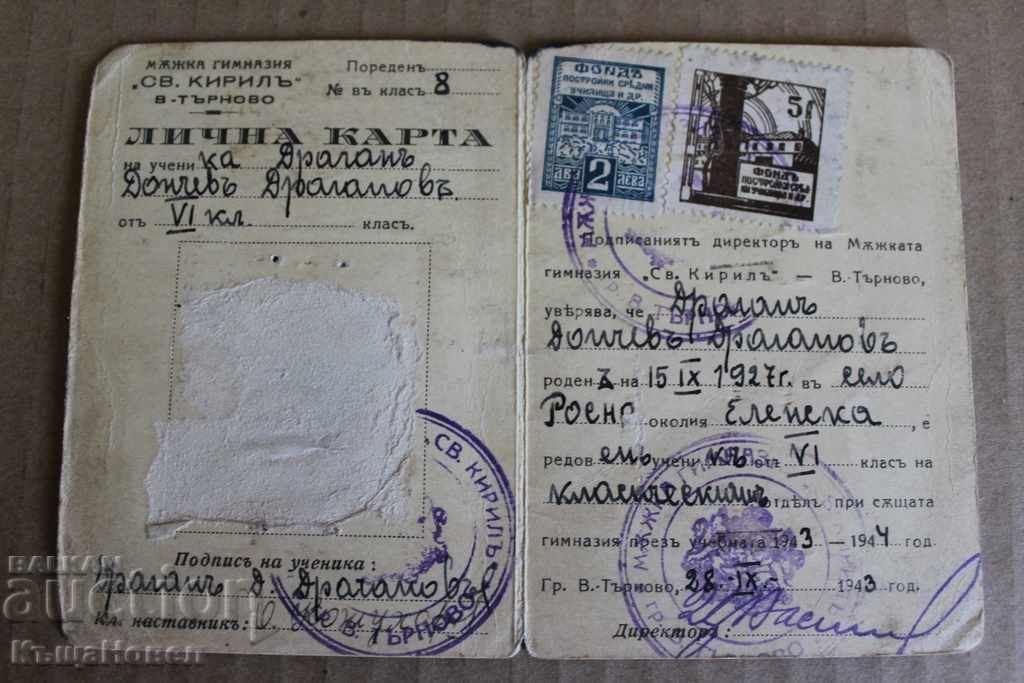 МѪЖКА ГИМНАЗИЯ
„СВ. КИРИЛЪ“
В-ТЪРНОВО
Пореденъ
№ въ класъ 8
ЛИЧНА КАРТА
на ученика Драганъ
Дончевъ Драгановъ
отъ VI кл. класъ.
Подпис на ученика:
Драганъ Д. Драгановъ
кл. наставникъ:
СВ. КИРИЛЪ
В. ТЪРНОВО
ФОНДЪ
ПОСТРОЙКИ СРѢДНИ
УЧИЛИЩА И ДР.
ДВА 2 ЛЕВА
5
ФОНДЪ
Подписаниятъ директоръ на Мѫжката
гимназия „Св. Кирилъ“ — В.-Търново,
уверява, че Драганъ
Дончевъ Драгановъ
роденъ на 15 IX 1927 г. въ село
околия Еленска, е
редовенъ ученикъ отъ VI класъ на
класическиятъ отдѣлъ при сѫщата
гимназия презъ учебната 1943 — 1944 год.
Гр. В.-Търново, 28. IX. 1943 год.
Директоръ:
Балкан
auction
КъщаНовел